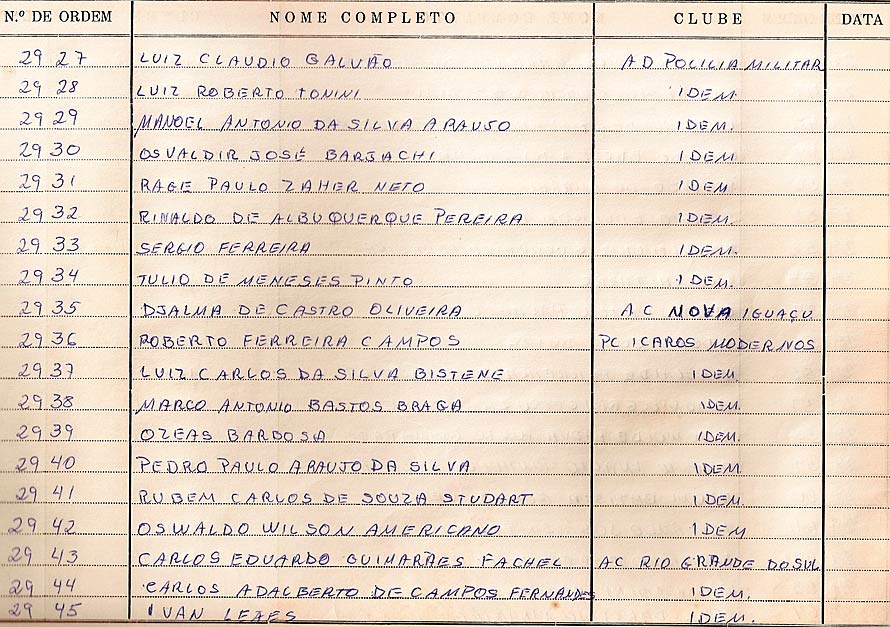 N.º DE ORDEM NOME COMPLETO CLUBE DATA
29 27 LUIZ CLAUDIO GALVÃO AD POLILIA MILITAR
29 28 LUIZ ROBERTO TONINI IDEM
29 29 MANOEL ANTONIO DA SILVA ARAUJO IDEM.
29 30 OSVALDIR JOSÉ BARJACHI IDEM.
29 31 RAGE PAULO ZAHER NETO IDEM
29 32 RINALDO DE ALBUQUERQUE PEREIRA IDEM.
29 33 SERGIO FERREIRA IDEM.
29 34 TULIO DE MENESES PINTO IDEM.
29 35 DJALMA DE CASTRO OLIVEIRA AC NOVA IGUAÇU
29 36 ROBERTO FERREIRA CAMPOS PC ICAROS MODERNOS
29 37 LUIZ CARLOS DA SILVA BISTENE IDEM
29 38 MARCO ANTONIO BASTOS BRAGA IDEM.
29 39 OZEAS BARBOSA IDEM.
29 40 PEDRO PAULO ARAUJO DA SILVA IDEM
29 41 RUBEM CARLOS DE SOUZA STUDART IDEM
29 42 OSWALDO WILSON AMERICANO IDEM
29 43 CARLOS EDUARDO GUIMARÃES FACHEL AC RIO GRANDE DO SUL
29 44 CARLOS ADALBERTO DE CAMPOS FERNANDES IDEM.
29 45 IVAN IDEM.